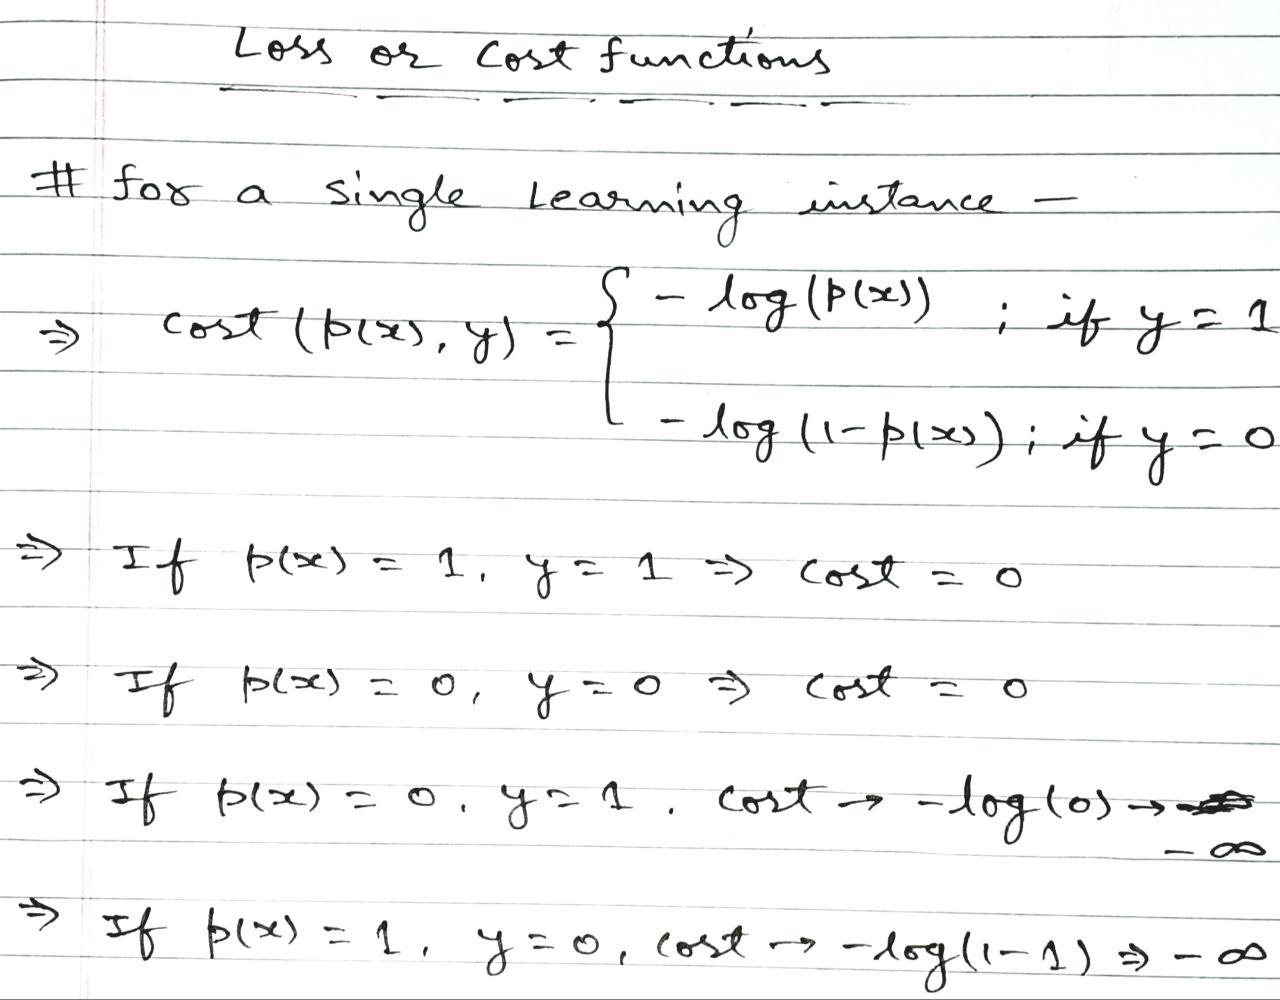 Loss or Cost functions
# for a single Learning instance –
⇒ cost (p(x), y) = { - log(p(x)) ; if y = 1
- log (1-p(x)) ; if y = 0
⇒ If p(x) = 1, y = 1 ⇒ cost = 0
⇒ If p(x) = 0, y = 0 ⇒ cost = 0
⇒ If p(x) = 0, y = 1, cost → -log(0) →
- ∞
⇒ If p(x) = 1, y = 0, cost → -log(1-1) ⇒ - ∞